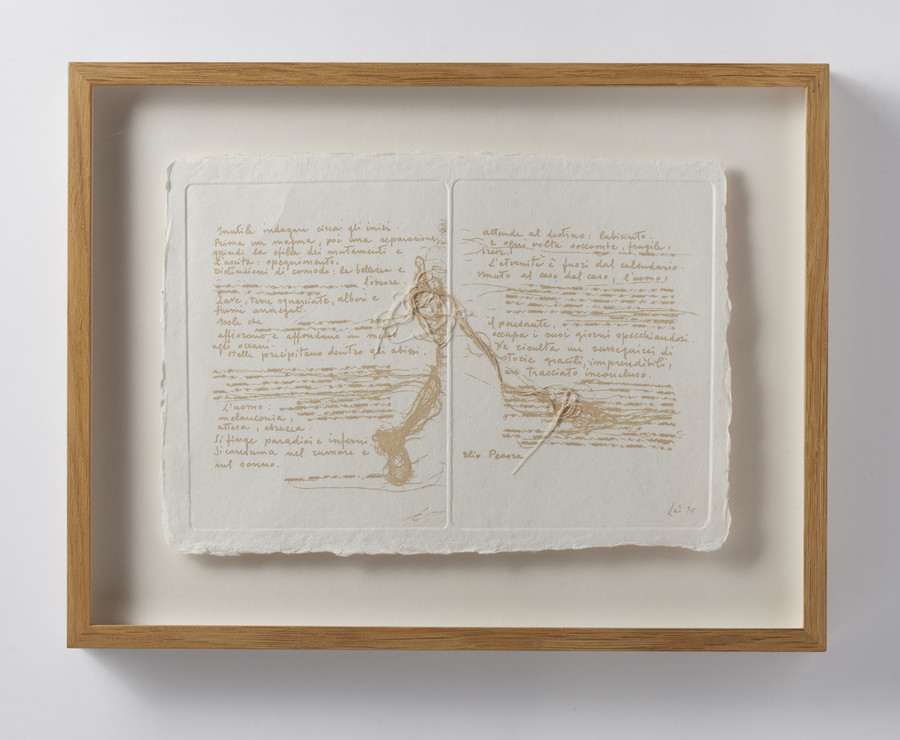 Inutile indagare circa gli inizi.
Prima un magma, poi una separazione,
quindi la sfilza dei mutamenti e
l'ascita: spegnimento.
Distinzioni di comodo: la bellezza e
l'orrore.
Lave, terre squarciate, alberi e
fiume annegati.
Isole che
affiorano e affondano in mezzo
agli oceani.
Stelle precipitano dentro gli abissi.
L'uomo:
melanconia,
attesa, ebrezza.
Si finge paradisi e inferni
Si consuma nel rumore e
nel sonno.
attende al destino: labirinto.
e ogni volta soccombe, fragile,
breve.
L'eternità è fuori dal calendario.
venuto al caso dal caso, l'uomo,
il pensante,
occupa i suoi giorni specchiandosi.
Ne risulta un susseguirsi di
storie gracili, imprendibili,
un tracciato inconcluso.
Elio Pecora
Lai